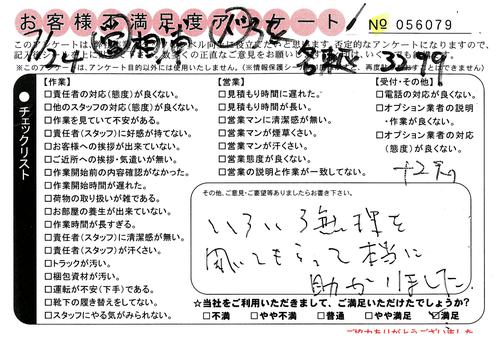 お客様不満足度アンケート
№ 056079
7/24
3299
※このアンケートは、アンケート目的以外には使用いたしません。
チェックリスト
【作業】
□責任者の対応(態度)が良くない。
□他のスタッフの対応(態度)が良くない。
□作業を見ていて不安がある。
□責任者(スタッフ)に好感が持てない。
□お客様への挨拶が出来ていない。
□ご近所への挨拶・気遣いが無い。
□作業開始前の内容確認がなかった。
□作業開始時間が遅れた。
□荷物の取り扱いが雑である。
□お部屋の養生が出来ていない。
□作業時間が長すぎる。
□責任者(スタッフ)に清潔感が無い。
□責任者(スタッフ)が汗くさい。
□トラックが汚い。
□梱包資材が汚い。
□運転が不安(下手)である。
□靴下の履き替えをしてない。
□スタッフにやる気がみられない。
【営業】
□見積もり時間に遅れた。
□見積もり時間が長い。
□営業マンに清潔感が無い。
□営業マンが煙草くさい。
□営業マンが汗くさい。
□営業態度が良くない。
□営業の説明と作業が一致してない。
【受付・その他】
□電話の対応が良くない。
□オプション業者の説明
・作業が良くない。
□オプション業者の対応
(態度)が良くない。
その他、ご意見・ご要望等ありましたらお書き下さい。
いろいろ無理を
聞いてもらって本当に
助かりました
☆当社をご利用いただきまして、ご満足いただけたでしょうか?
□不満 □やや不満 □普通 □やや満足 □満足
ご協力ありがとうございました